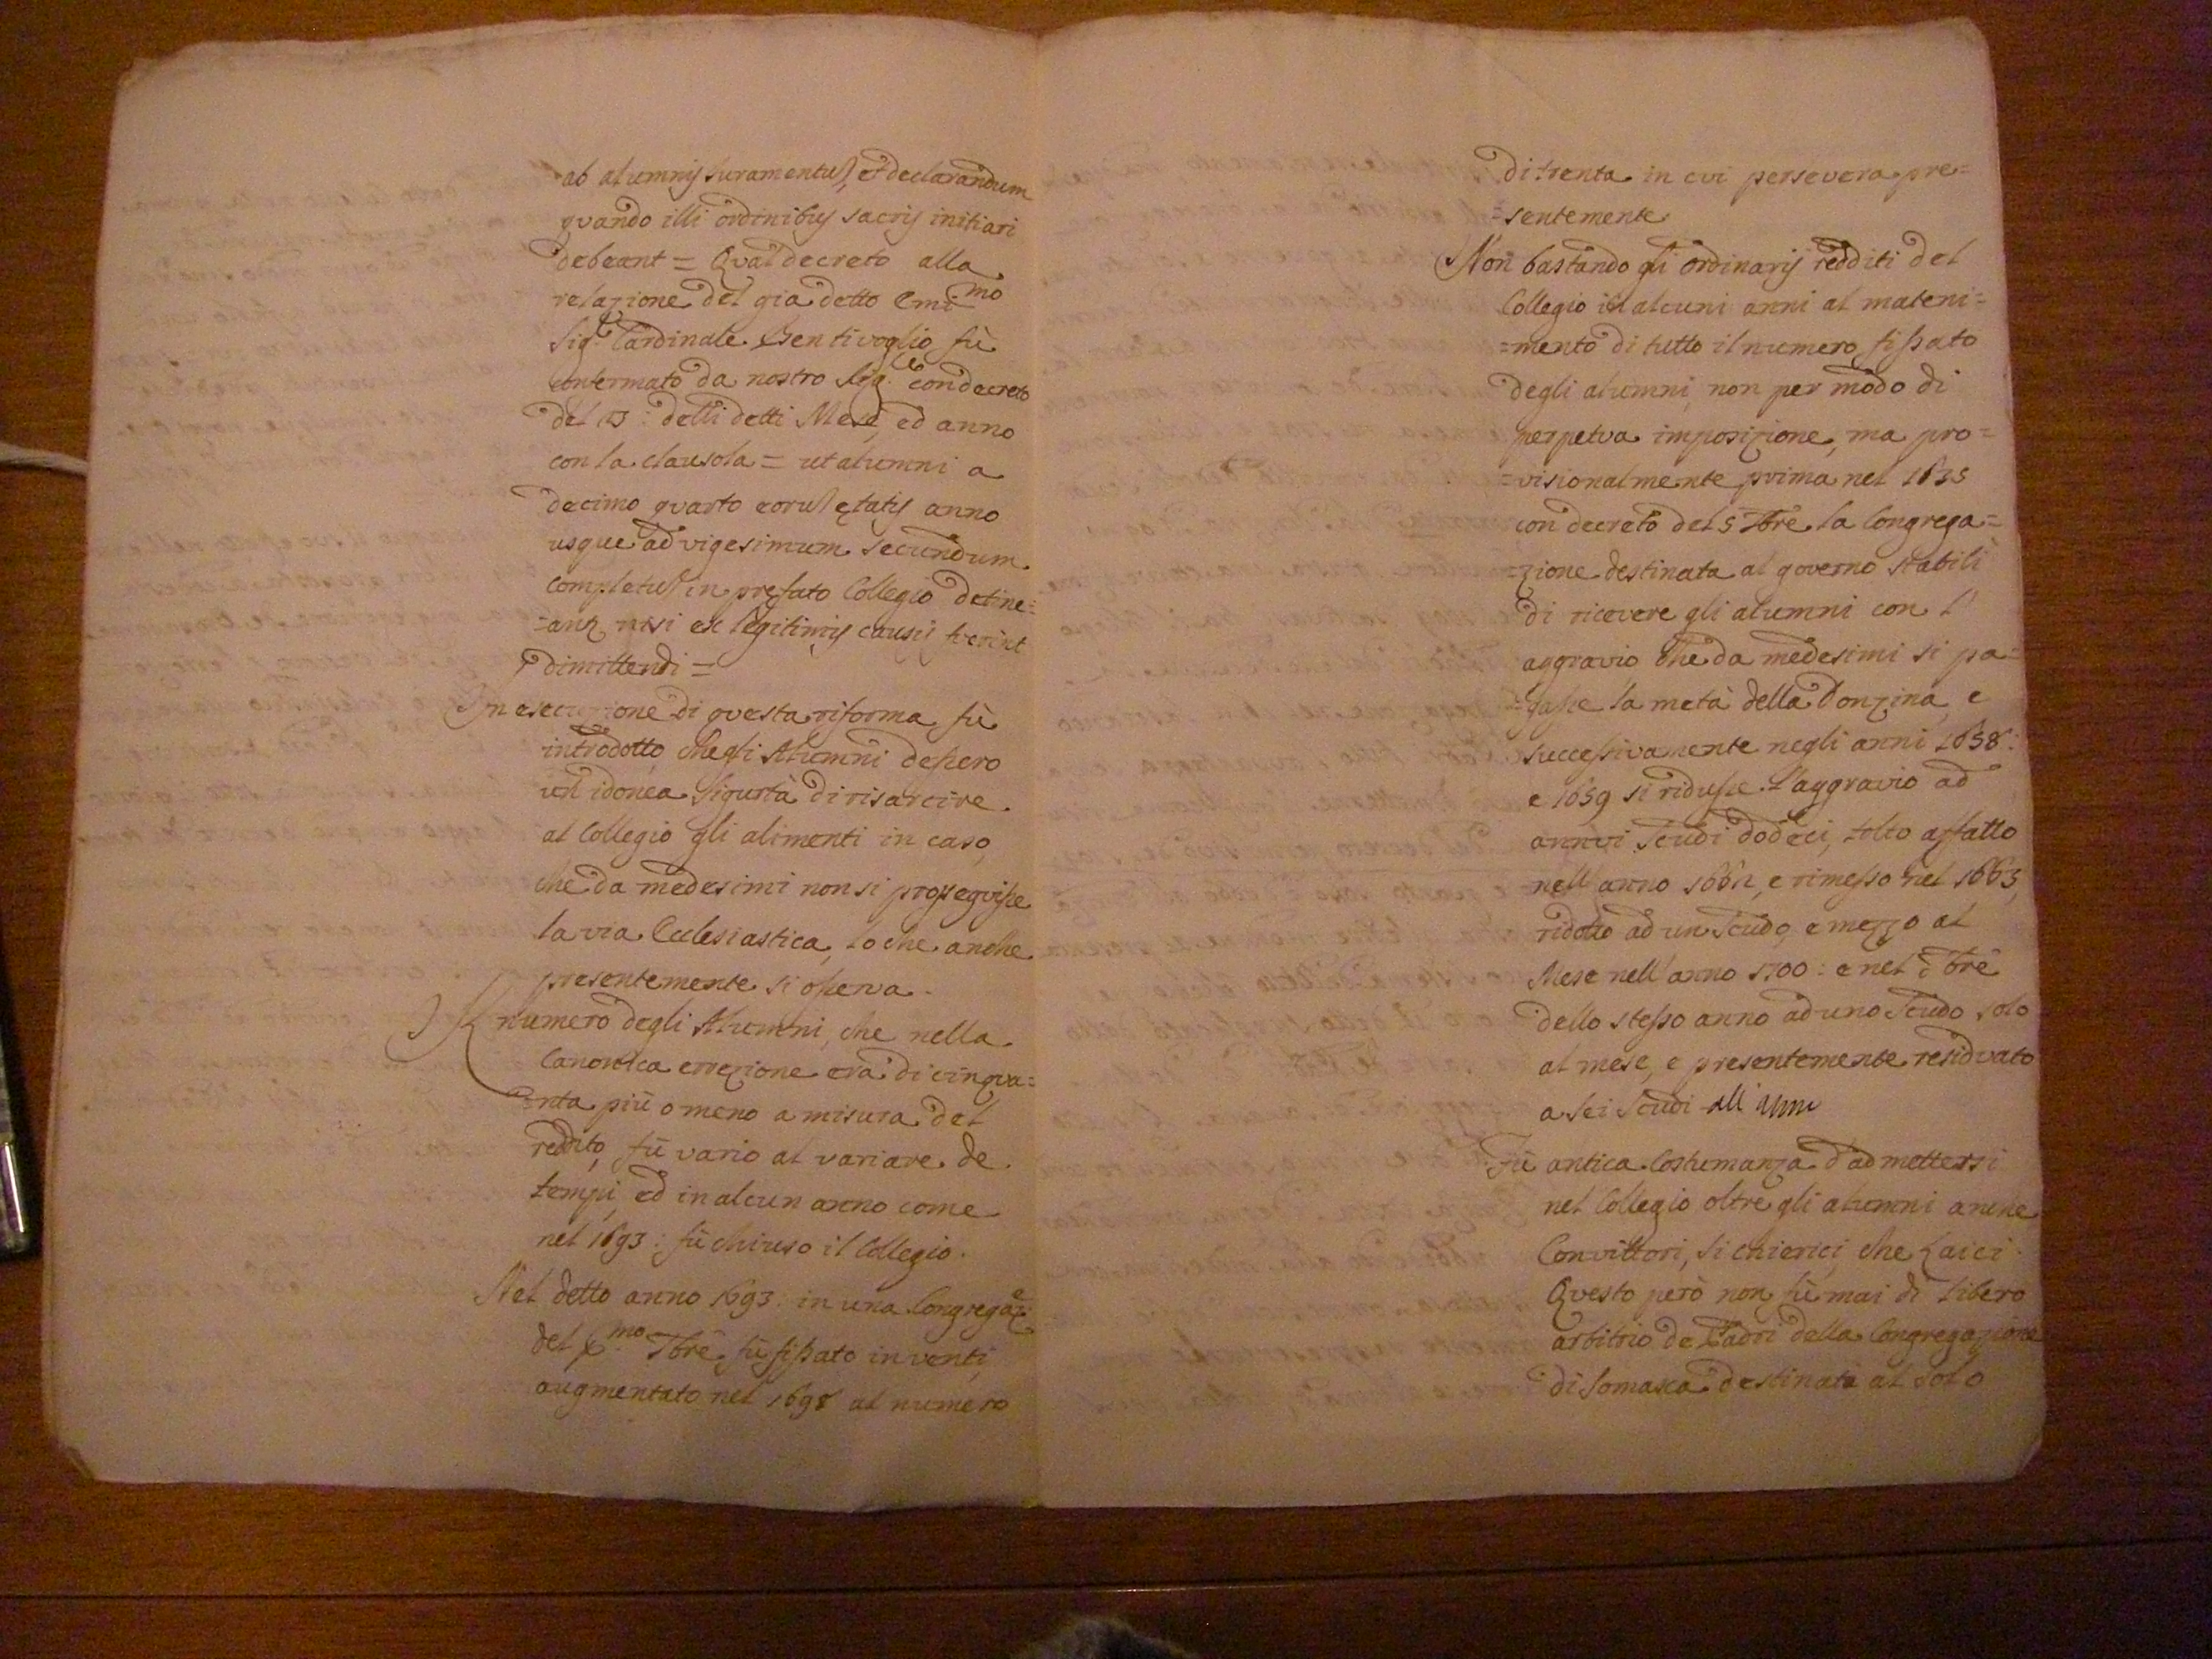 ab alumnis Iuramentum, et declarandum
quando illi ordinibus sacris initiari
debeant = Qual decreto alla
relazione del gia detto Emi.mo
Sig.r Cardinale Bentivoglio fù
confermato da nostro Sig.re con decreto
del 13: delli detti Mese, ed anno
con la clausola = ut alumni a
decimo quarto eorum ętatis anno
usque ad vigesimum secundum
completum in pręfato Collegio detine=
=antur nisi ex legitimis causis fuerint
dimittendi =
In esecuzione di questa riforma fù
introdotto che gli Alumni dassero
un idonea Sigurtà di risarcire
al Collegio gli alimenti in caso,
che da medesimi non si proseguisse
la via Ecclesiastica, lo che anche
presentemente si osserva.
Il numero degli Alumni, che nella
Canonica errezione era di cinqua=
=nta più o meno a misura del
reddito, fù vario al variare de
tempi, ed in alcun anno come
nel 1693: fù chiuso il Collegio.
Nel detto anno 1693: in una Congregaz.e
del p.mo 7bre fù fissato in venti,
augmentato nel 1698 al numero
di trenta in cui persevera pre=
=sentemente
Non bastando gli ordinarij redditi del
Collegio in alcuni anni al mateni=
=mento di tutto il numero fissato
degli alumni, non per modo di
perpetua imposizione, ma pro=
=visionalmente prima nel 1635
con decreto del 5 7bre la Congrega=
=zione destinata al governo stabilì
di ricevere gli alumni con l'
aggravio che da medesimi si pa=
=gasse la metà della Donzina, e
successivamente negli anni 1658:
e 1659 si ridusse l'aggravio ad
annui Scudi dodeci, tolto affatto
nell' anno 1662, e rimesso nel 1663,
ridotto ad un Scudo, e mezzo al
Mese nell' anno 1700: e nel Xbre
dello stesso anno ad uno Scudo solo
al mese, e presentemente residuato
a sei Scudi all'
Fù antica Costumanza d'admettersi
nel Collegio oltre gli alumni anche
Convittori, sì chierici, che Laici.
Questo però non fù mai di libero
arbitrio de Padri della Congregazione
di Somasca destinata al solo